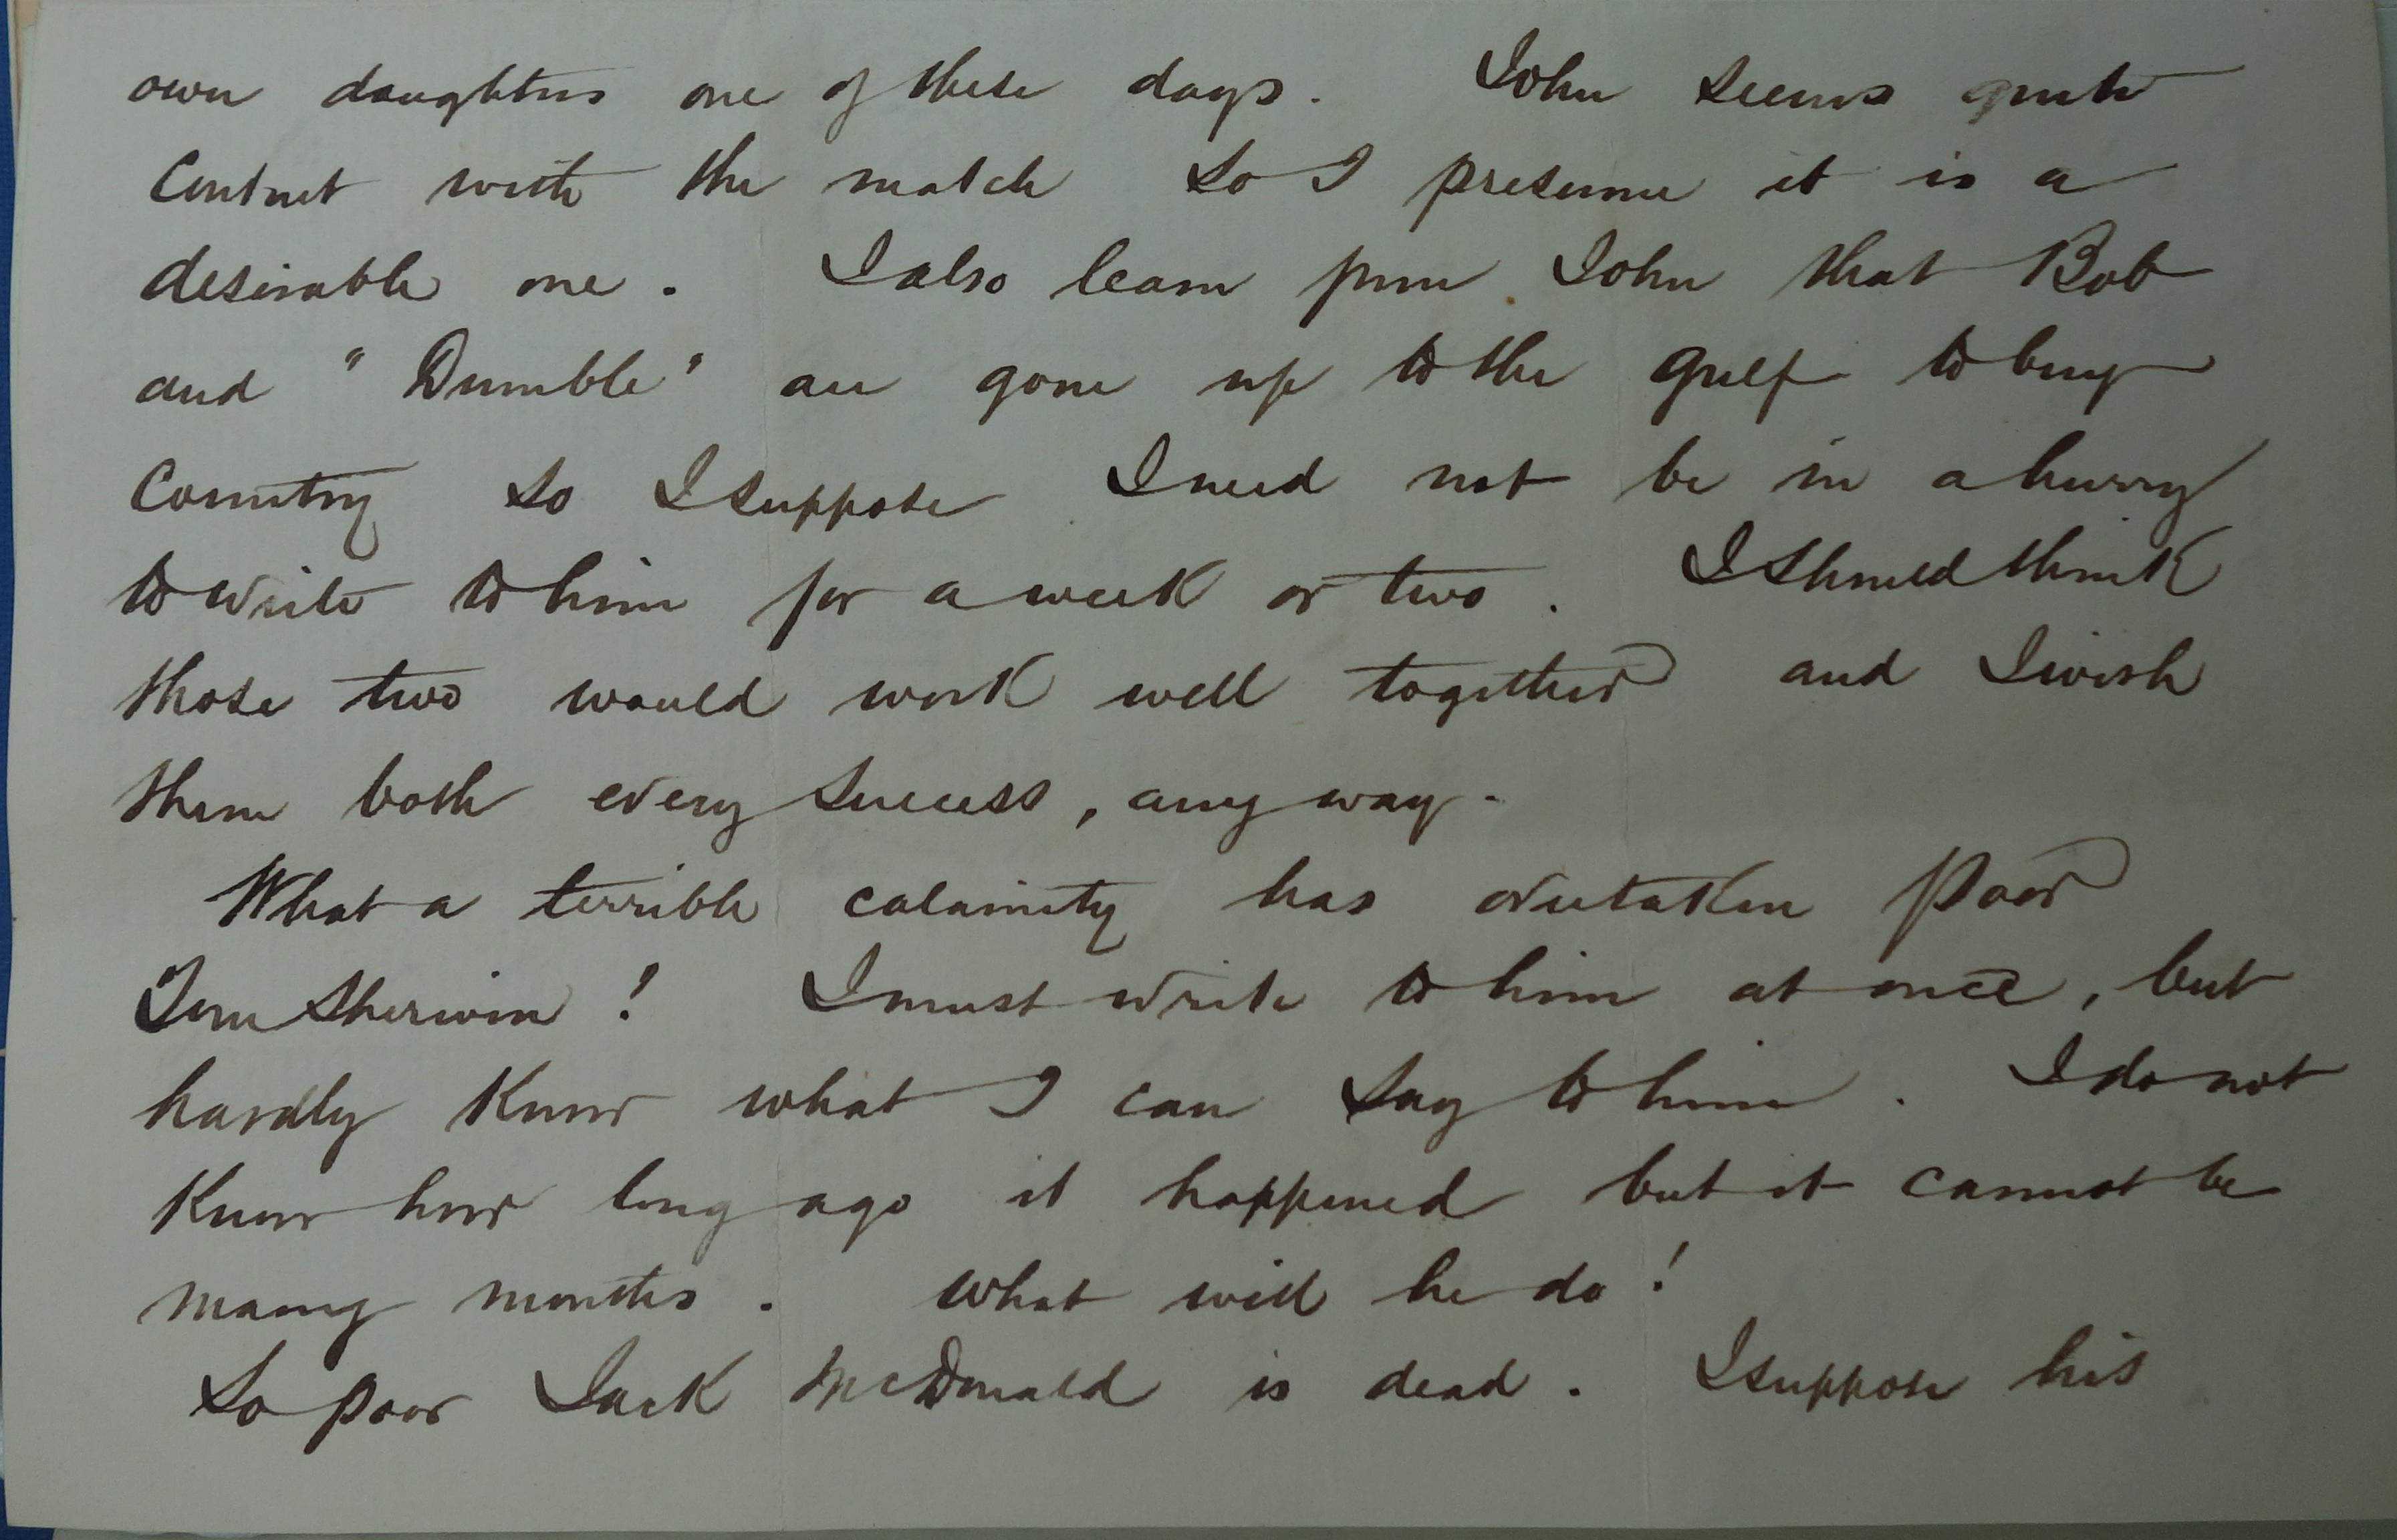 own daughters one of these days. John seems quite
content with the match so I presume it is a
desirable one. I also learn from John that Bob
and "Dumble" are gone up to the gulf to buy
country so I suppose I need not be in a hurry
to write to him for a week or two. I should think
those two would work well together and I wish
them both every success, any way.
What a terrible calamity has overtaken poor
Tom Sherwin! I must write to him at once, but
hardly know what I can say to him. I do not
know how long ago it happened but it cannot be
many months. What will he do!
So poor Jack McDonald is dead. I suppose his